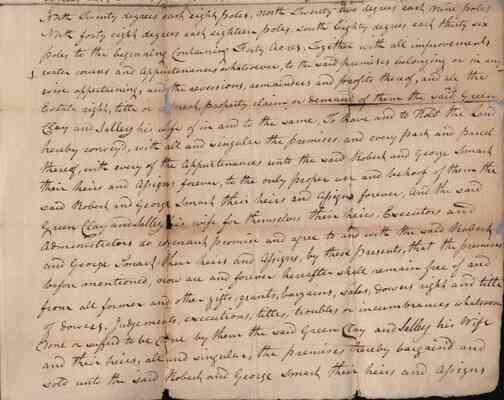 North Twenty degrees each eight poles, north Twenty two degrees each nine poles
North forty eight degrees each eighteen poles. South Eighty degrees each thirty six
poles to the beginning Containing Sixty Acres, Together with all improvements
water courses and appurtenances whatsoever, to the said premises belonging or in any
wise appertaining, and the reversions, remainders and profits thereof, and all the
Estate right, title or property claim or demand of them the said Green
Clay and Salley his wife of in and to the same, To have and to Hold the Land
hereby convey'd, with all and singular the premises and every part and parcel
thereof, with every of the Appurtenances unto the said Robert and George Smart
their heirs and Assigns forever, to the only proper use and behoof of them the
said Robert and George Smart their heirs and Assigns forever, And the said
Green Clay and Salley his wife for themselves their heirs Executors and
Administrators do covenant promise and agree to and with the said Robert
and George Smart their heirs and Assigns, by these presents, that the premises
before mentioned, now are and forever hereafter shall remain free of and
from all former and other gifts, grants, bargains, sales, dowers right and title
of dowers, Judgements, executions, titles, troubles or incumbrances whatsoever
done or suffered to be done by them the said Green Clay and Salley his Wife
and their heirs, all and singular, the premises hereby bargain'd and
sold unto the said Robert and George Smart their heirs and Assigns